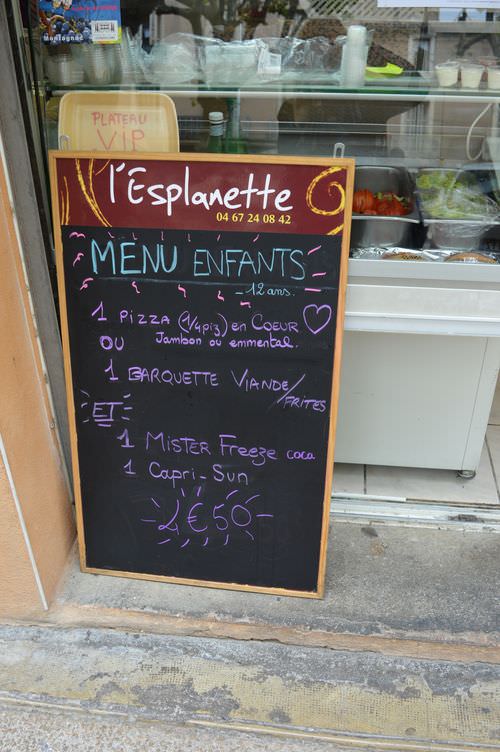 Montagnac
PLATEAU
VIP
l'Esplanette
04 67 24 08 42
MENU ENFANTS
-12 ans.
1 PIZZA (1/4 piz) en COEUR
OU Jambon ou emmental.
1 BARQUETTE VIANDE/FRITES
ET
1 MISTER Freeze coca
1 Capri-Sun
4€50